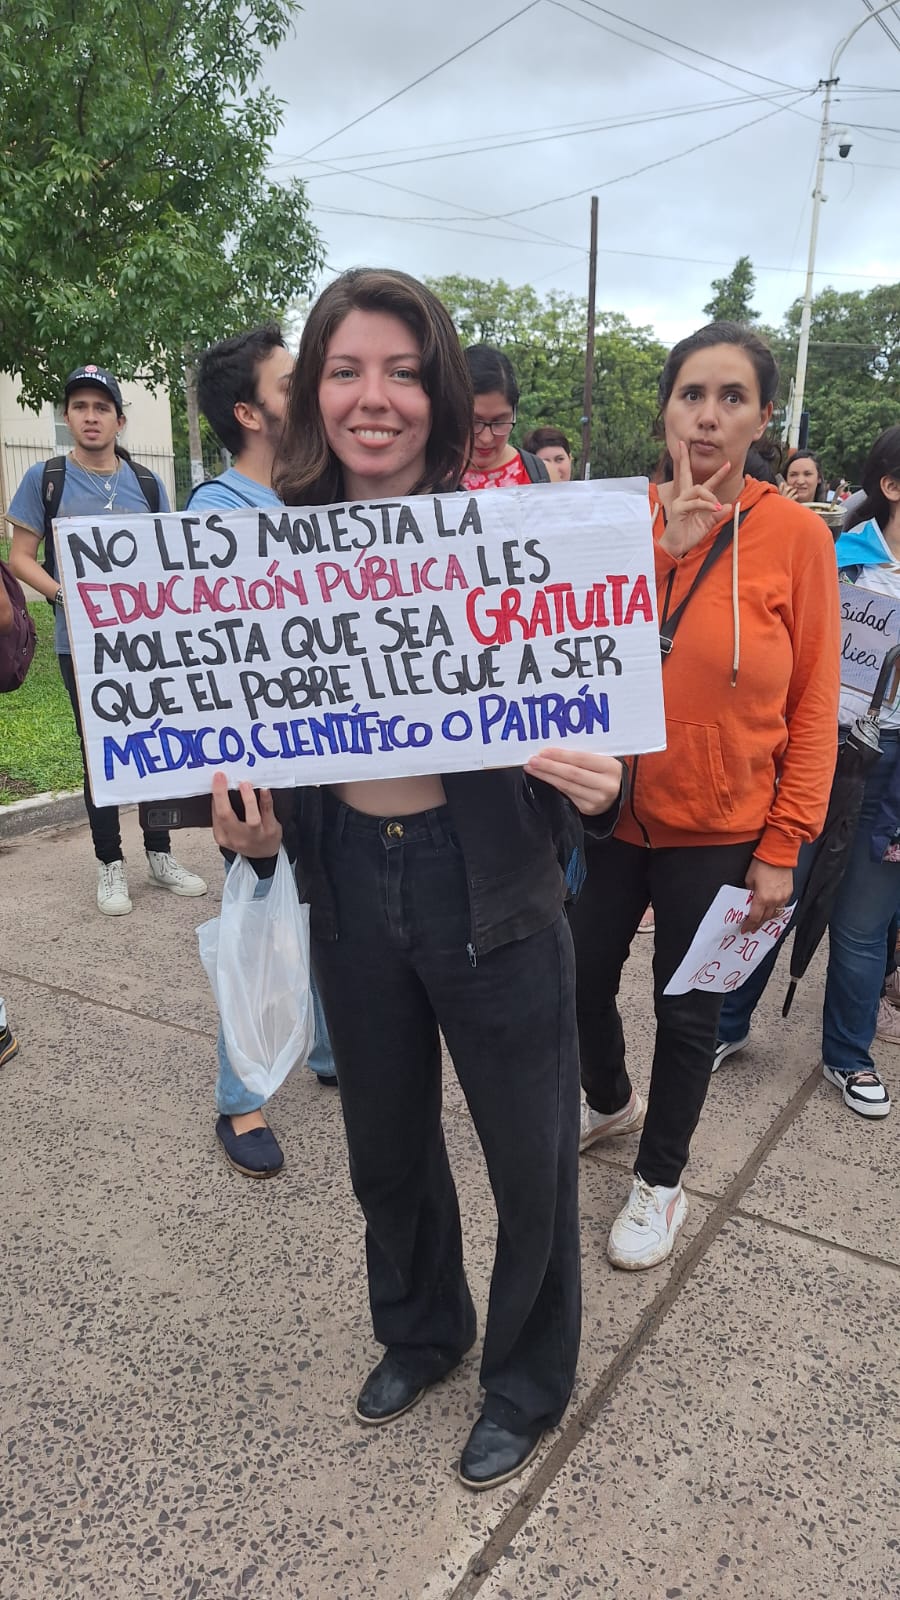 NO LES MOLESTA LA
EDUCACIÓN PÚBLICA LES
MOLESTA QUE SEA GRATUITA
QUE EL POBRE LLEGUE A SER
MÉDICO, CIENTÍFICO O PATRÓN
sidad
lica
YO SOY
DE LA